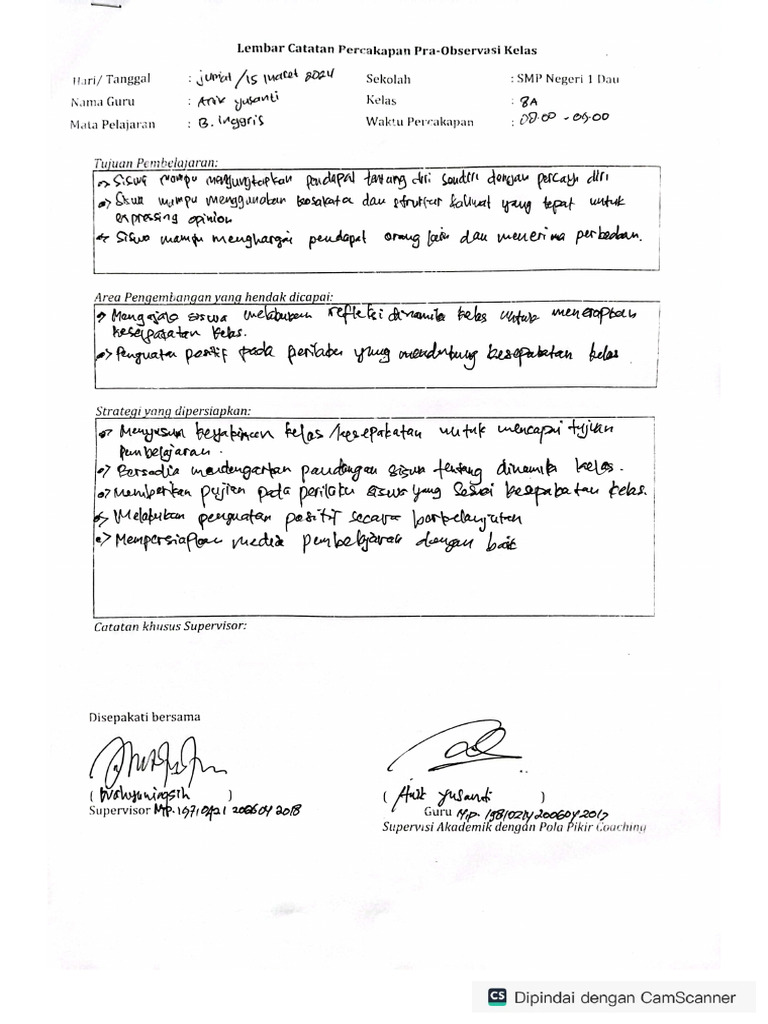 Lembar Catatan Percakapan Pra-Observasi Kelas
Hari/ Tanggal : jumat /15 maret 2024 Sekolah : SMP Negeri 1 Dau
Nama Guru : Anik yusanti Kelas : 8A
Mata Pelajaran : B. Inggris Waktu Percakapan : 08.00 - 09.00
Tujuan Pembelajaran:
Siswa mampu mengungkapkan pendapat tentang diri sendiri dengan percaya diri
Siswa mampu menggunakan kosakata dan struktur kalimat yang tepat untuk
expressing opinion
Siswa mampu menghargai pendapat orang lain dan menerima perbedaan.
Area Pengembangan yang hendak dicapai:
Mengajak siswa melakukan refleksi dinamika kelas untuk menerapkan
kesepakatan kelas.
Penguatan positif pada perilaku yang mendukung kesepakatan kelas
Strategi yang dipersiapkan:
Menyusun keyakinan kelas /kesepakatan untuk mencapai tujuan
pembelajaran.
Bersedia mendengarkan pandangan siswa tentang dinamika kelas.
Memberikan pujian pada perilaku siswa yang sesuai kesepakatan kelas.
Melakukan penguatan positif secara berkelanjutan
Mempersiapkan media pembelajaran dengan baik
Catatan khusus Supervisor:
Disepakati bersama
( Wahyuningsih ) ( Anik yusanti )
Supervisor Guru
Supervisi Akademik dengan Pola Pikir Coaching
CS Dipindai dengan CamScanner